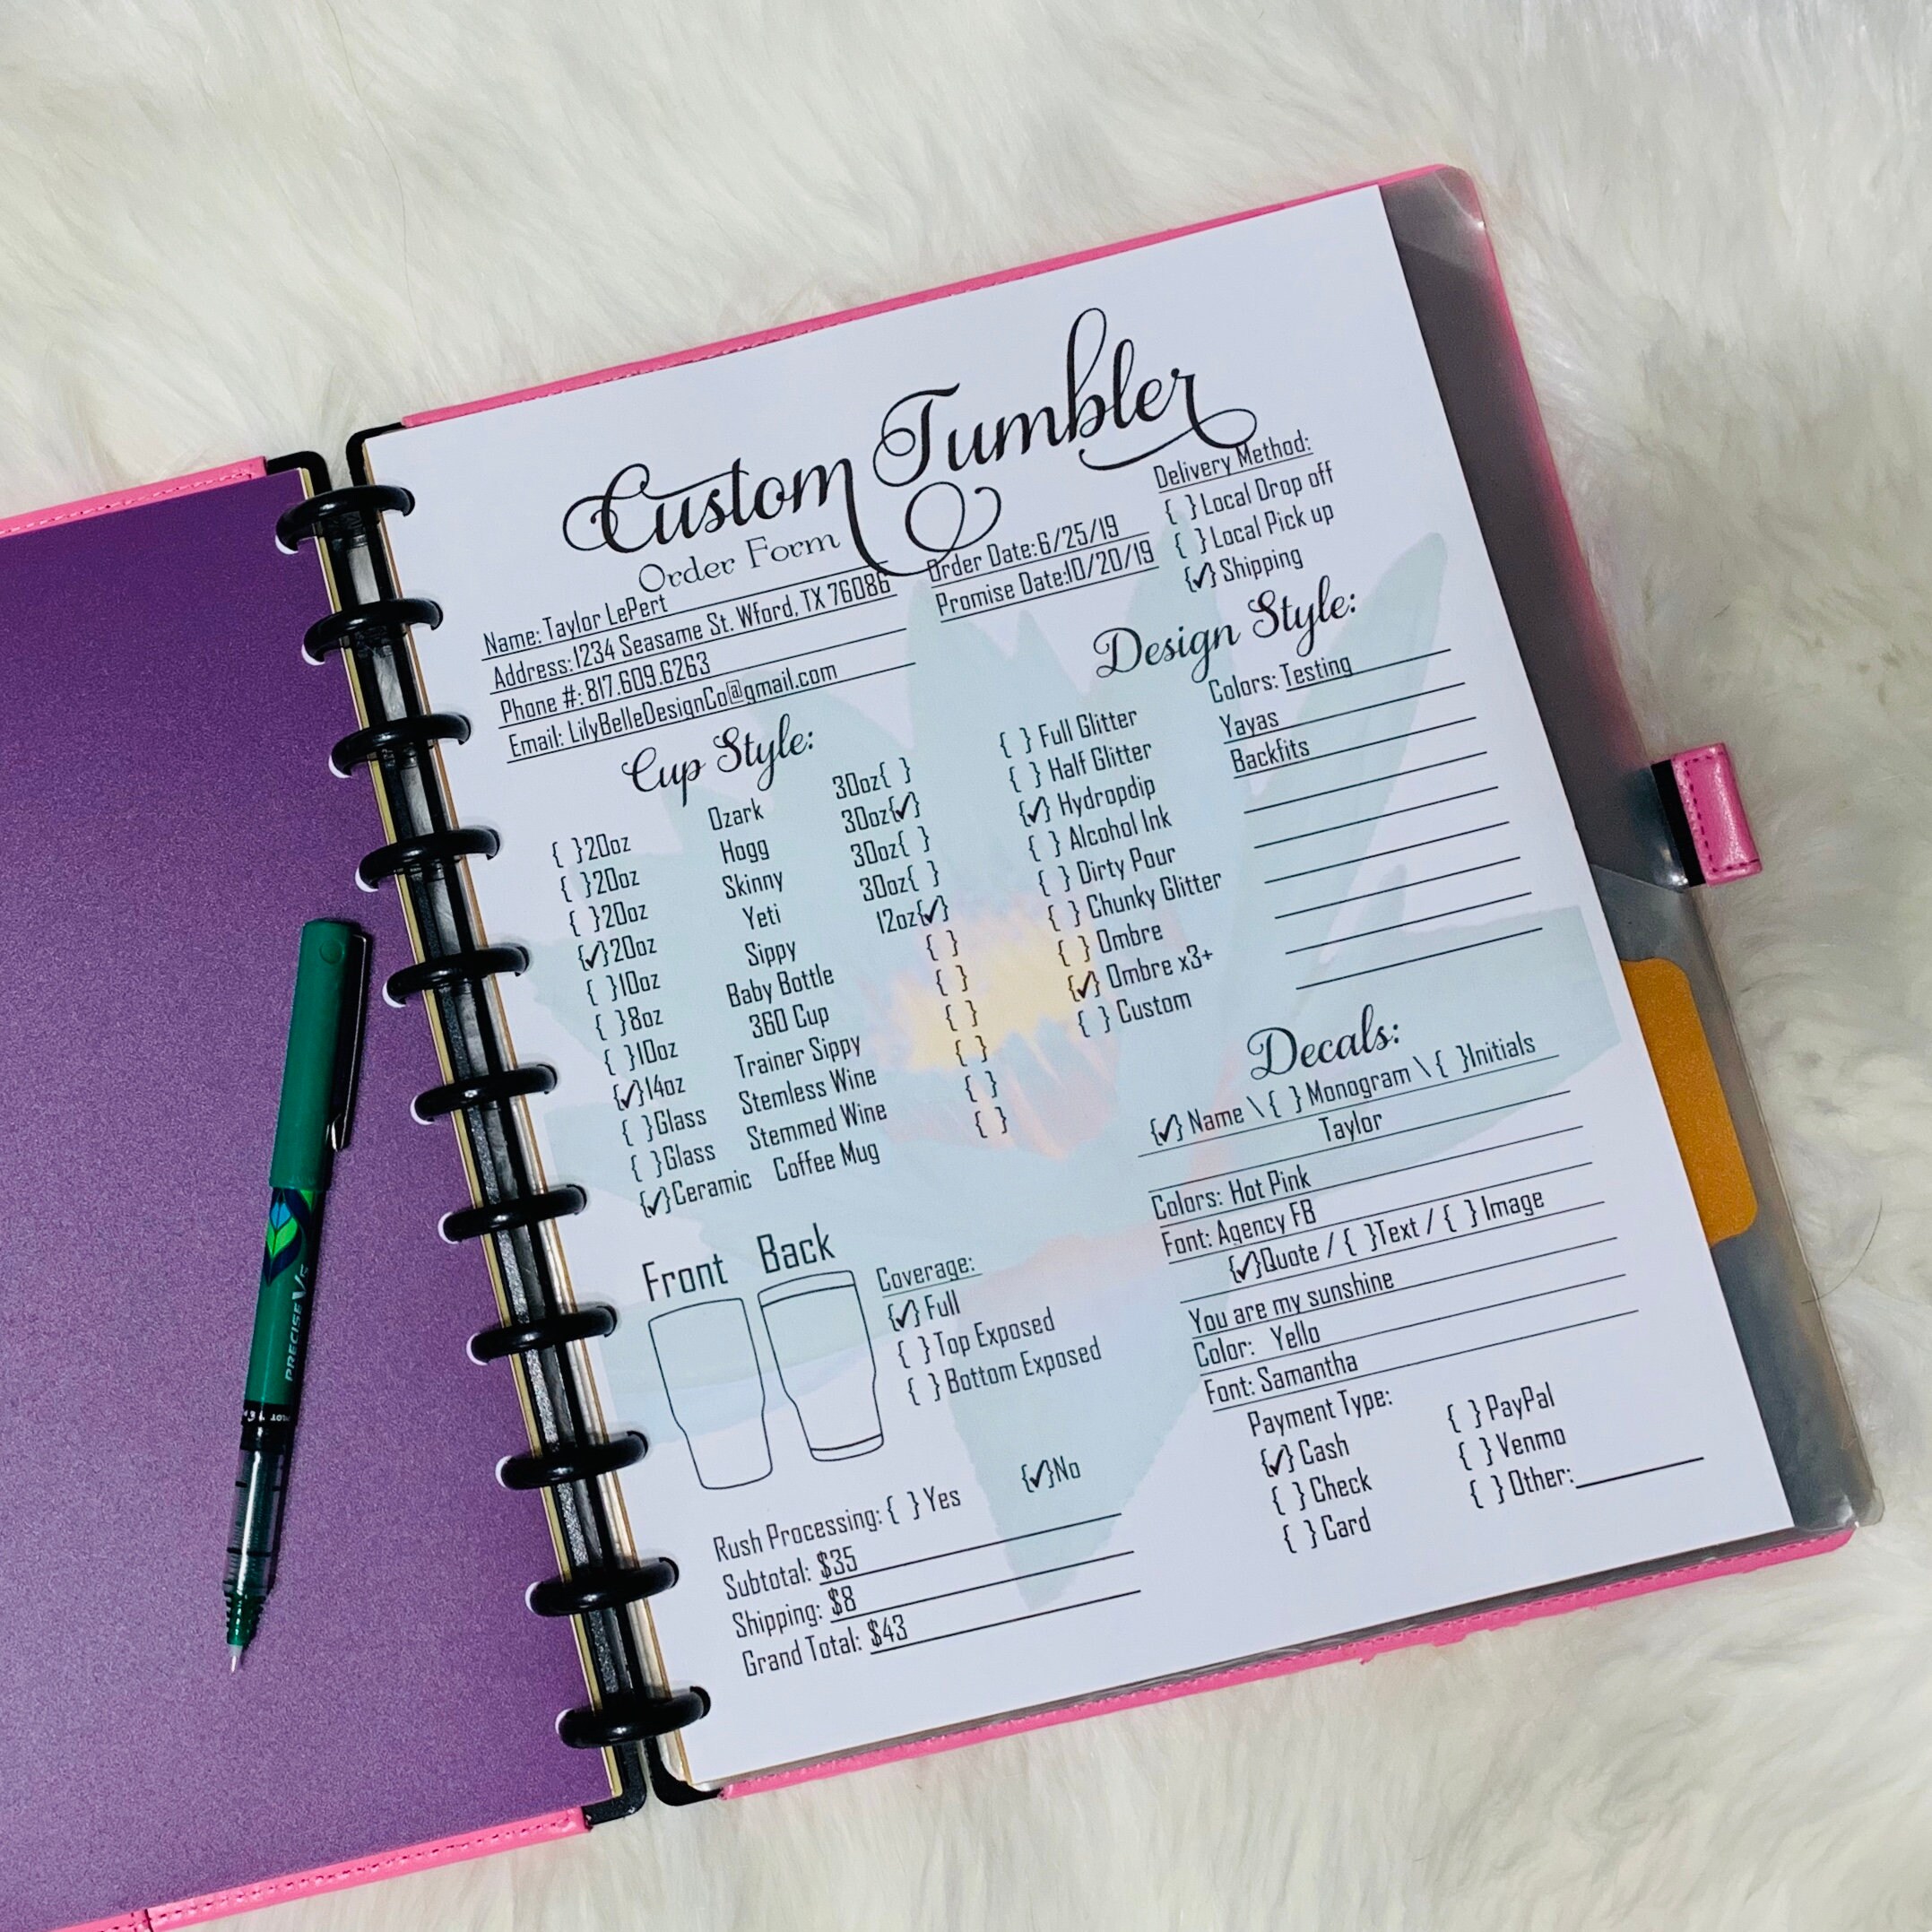 Custom Tumbler
Order Form
Name: Taylor LePert
Address: 1234 Seasame St. Wford, TX 76086
Phone #: 817.609.6263
Email: LilyBelleDesignCo@gmail.com
Order Date: 6/25/19
Promise Date: 10/20/19
Delivery Method:
{ } Local Drop off
{ } Local Pick up
{✓} Shipping
Cup Style:
{ }20oz Ozark 30oz{ }
{ }20oz Hogg 30oz{✓}
{ }20oz Skinny 30oz{ }
{✓}20oz Yeti 30oz{ }
{ }10oz Sippy 12oz{✓}
{ }8oz Baby Bottle { }
{ }10oz 360 Cup { }
{✓}14oz Trainer Sippy { }
{ }Glass Stemless Wine { }
{ }Glass Stemmed Wine { }
{✓}Ceramic Coffee Mug { }
Design Style:
{ } Full Glitter
{ } Half Glitter
{✓} Hydropdip
{ } Alcohol Ink
{ } Dirty Pour
{ } Chunky Glitter
{ } Ombre
{✓} Ombre x3+
{ } Custom
Colors: Testing
Yayas
Backfits
Decals:
{✓} Name \ { } Monogram \ { }Initials
Taylor
Colors: Hot Pink
Font: Agency FB
{✓}Quote / { }Text / { } Image
You are my sunshine
Color: Yello
Font: Samantha
Front Back
Coverage:
{✓} Full
{ } Top Exposed
{ } Bottom Exposed
Rush Processing: { } Yes {✓}No
Subtotal: $35
Shipping: $8
Grand Total: $43
Payment Type:
{✓} Cash
{ } Check
{ } Card
{ } PayPal
{ } Venmo
{ } Other:
PRECISE V5
PILOT